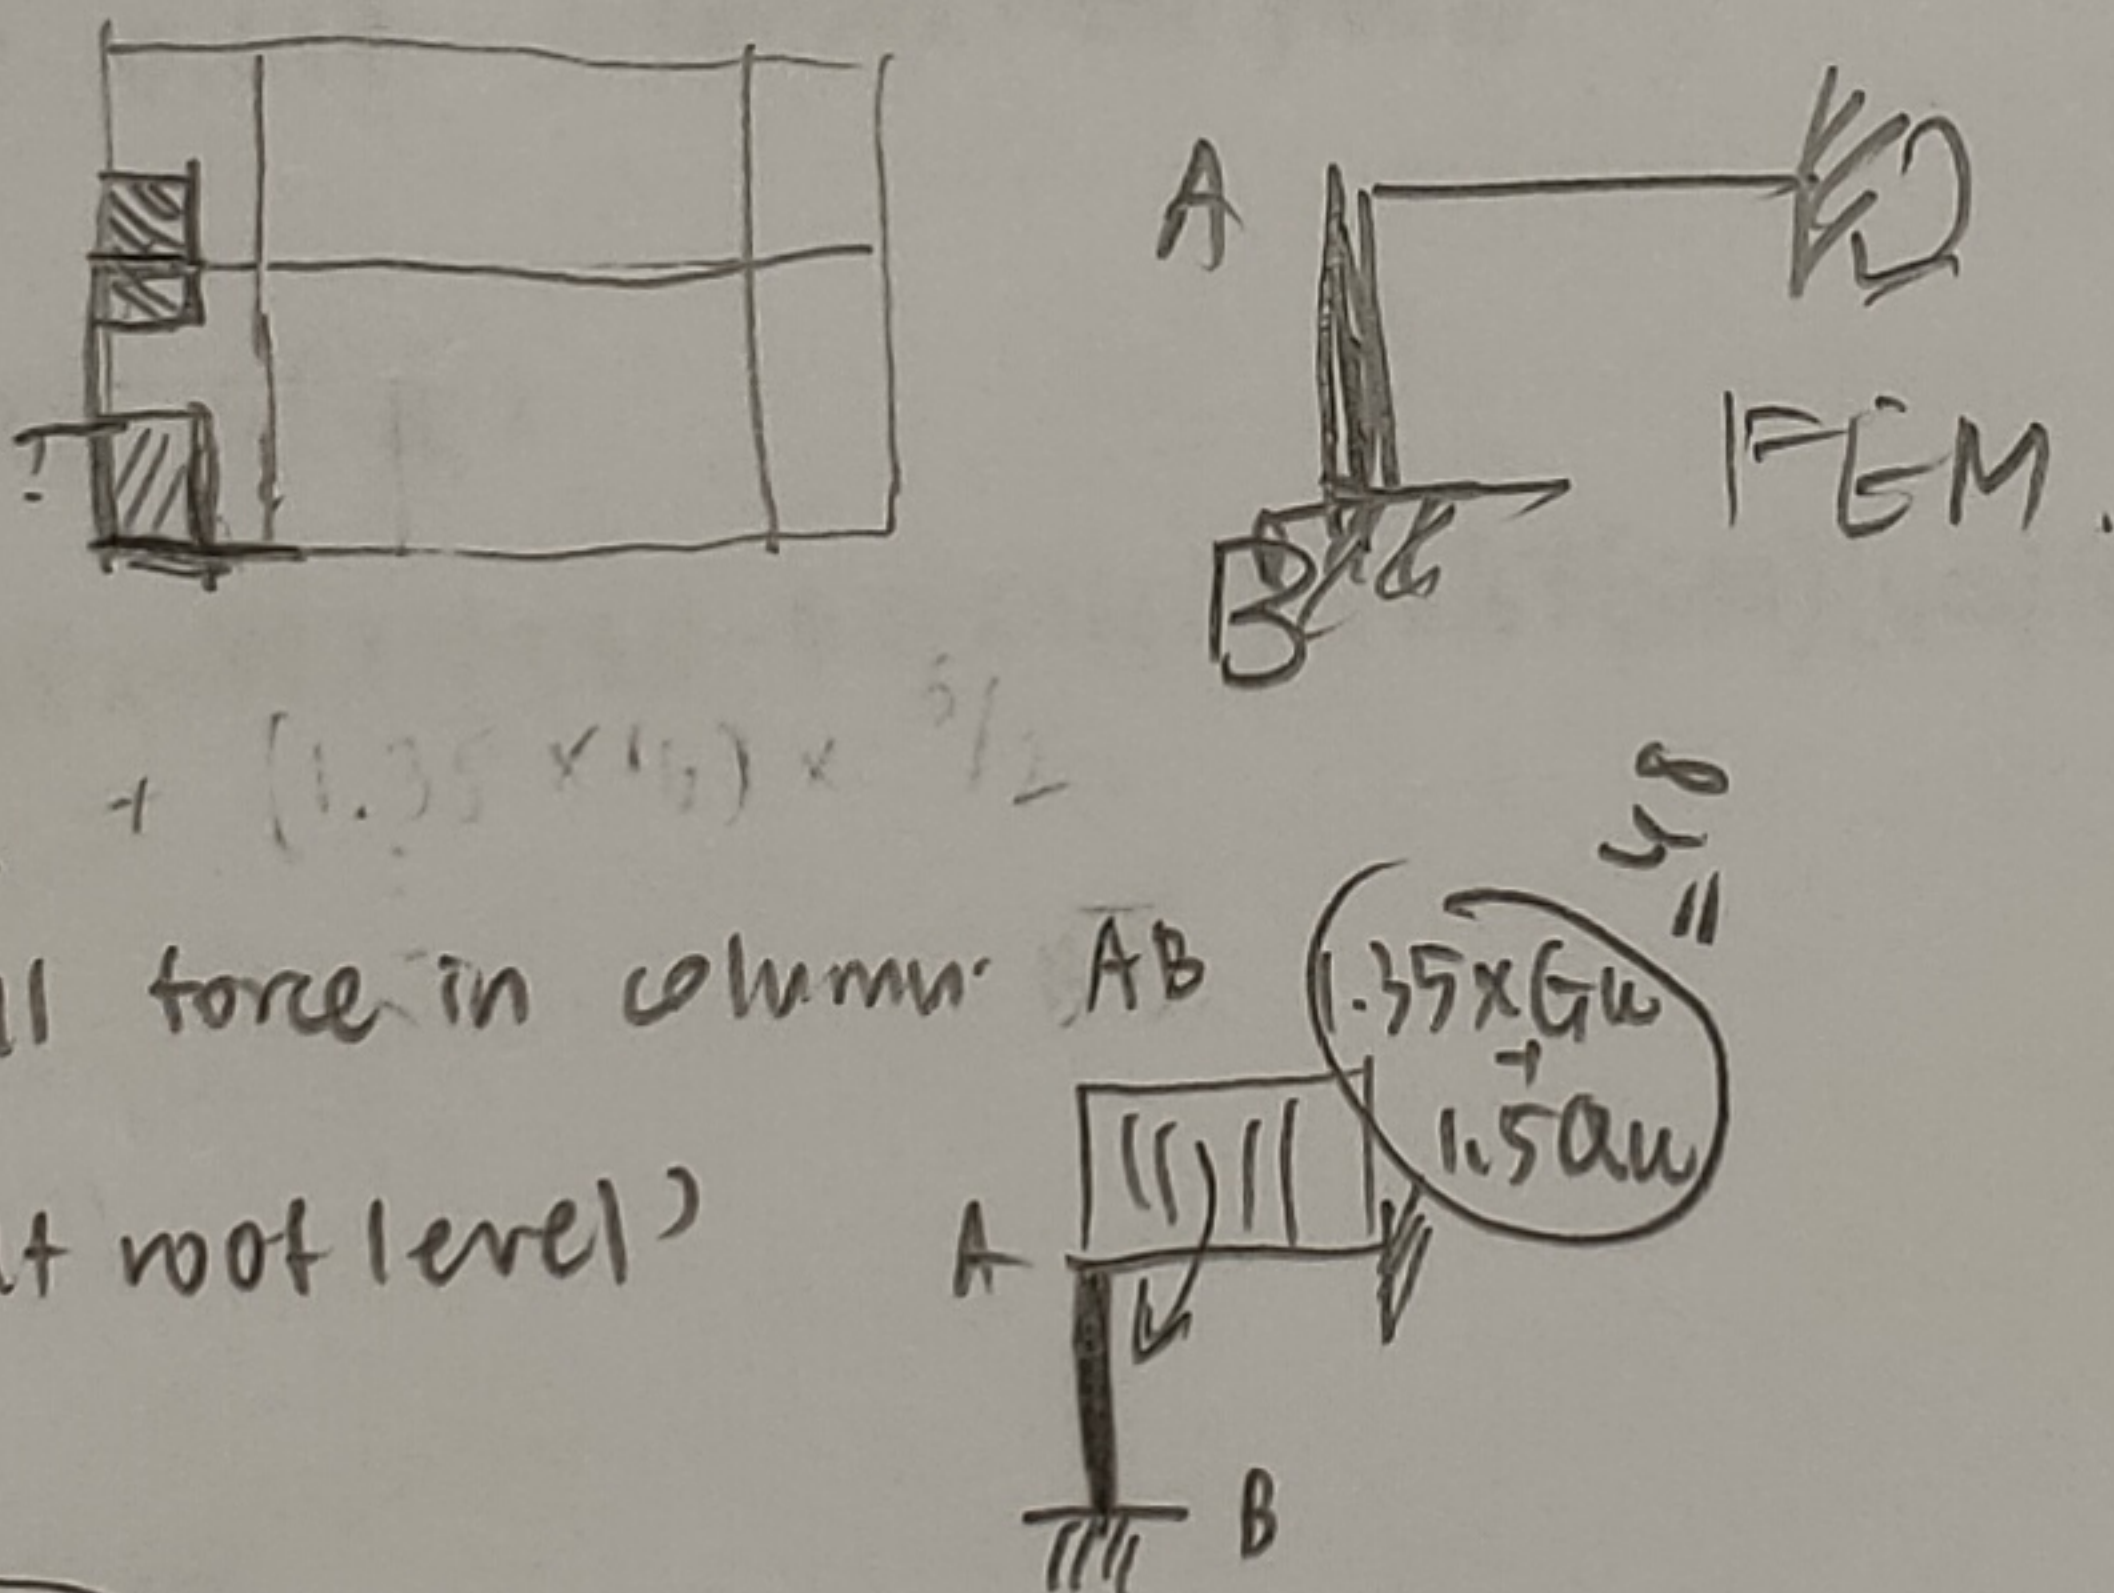 A
D
FEM.
B
?
+ (1.35 × 16) × 5/2
ll force in column AB
1.35×Gk
+
1.5Qk
=
48
t roof level)
A
B